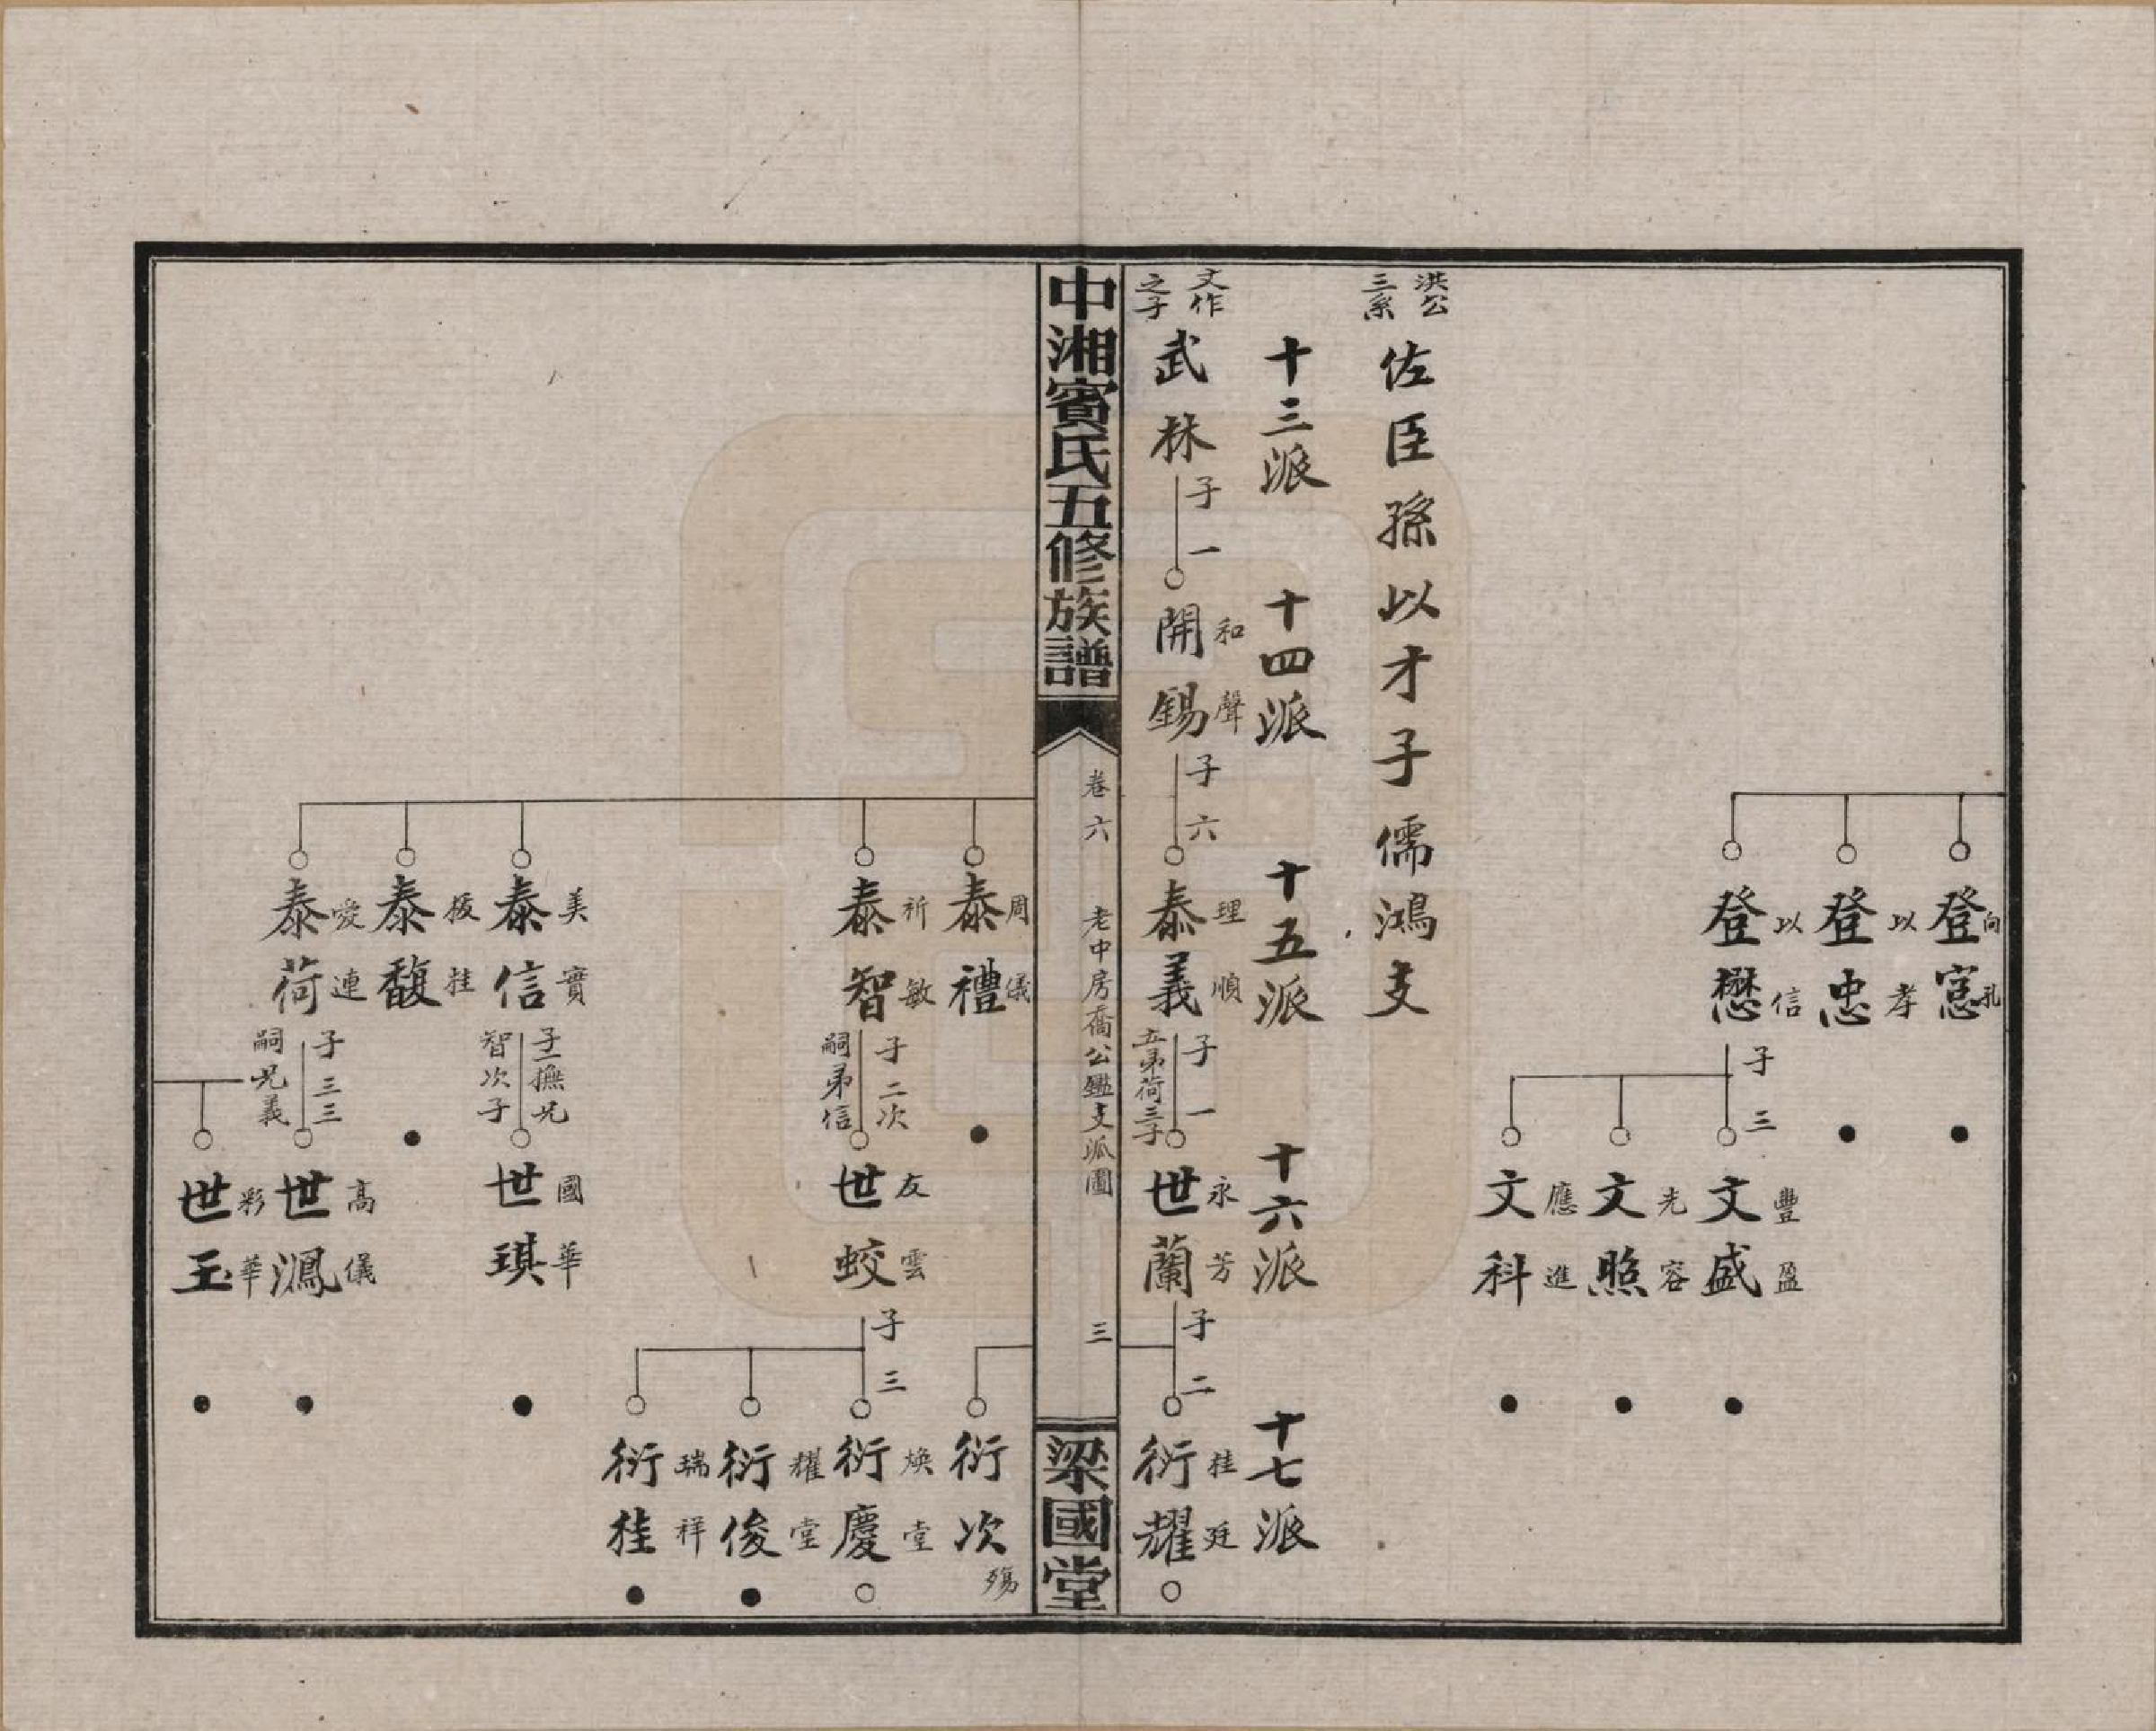 登憲 向孔
登忠 以孝
登懋 以信
子三
文盛 豐盈
文照 光容
文科 應進
洪公三系
佐臣孫以才子儒鴻支
十三派
十四派
十五派
十六派
十七派
文作之子
武林
子一
開錫 和聲
子六
泰義 理順
子一
五弟荷三子
世蘭 永芳
子二
衍耀 桂廷
中湘賓氏五修族譜
卷六
老中房喬公鑑支派圖
三
梁國堂
泰禮 周儀
衍次
殤
泰智 祈敏
子二次
嗣弟信
世蛟 友雲
子三
衍慶 煥堂
衍俊 耀堂
衍桂 瑞祥
泰信 美實
子一撫兄
智次子
世琪 國華
泰馥 桂
泰荷 愛連
子三三
嗣兄義
世鳳 高儀
世玉 彩華